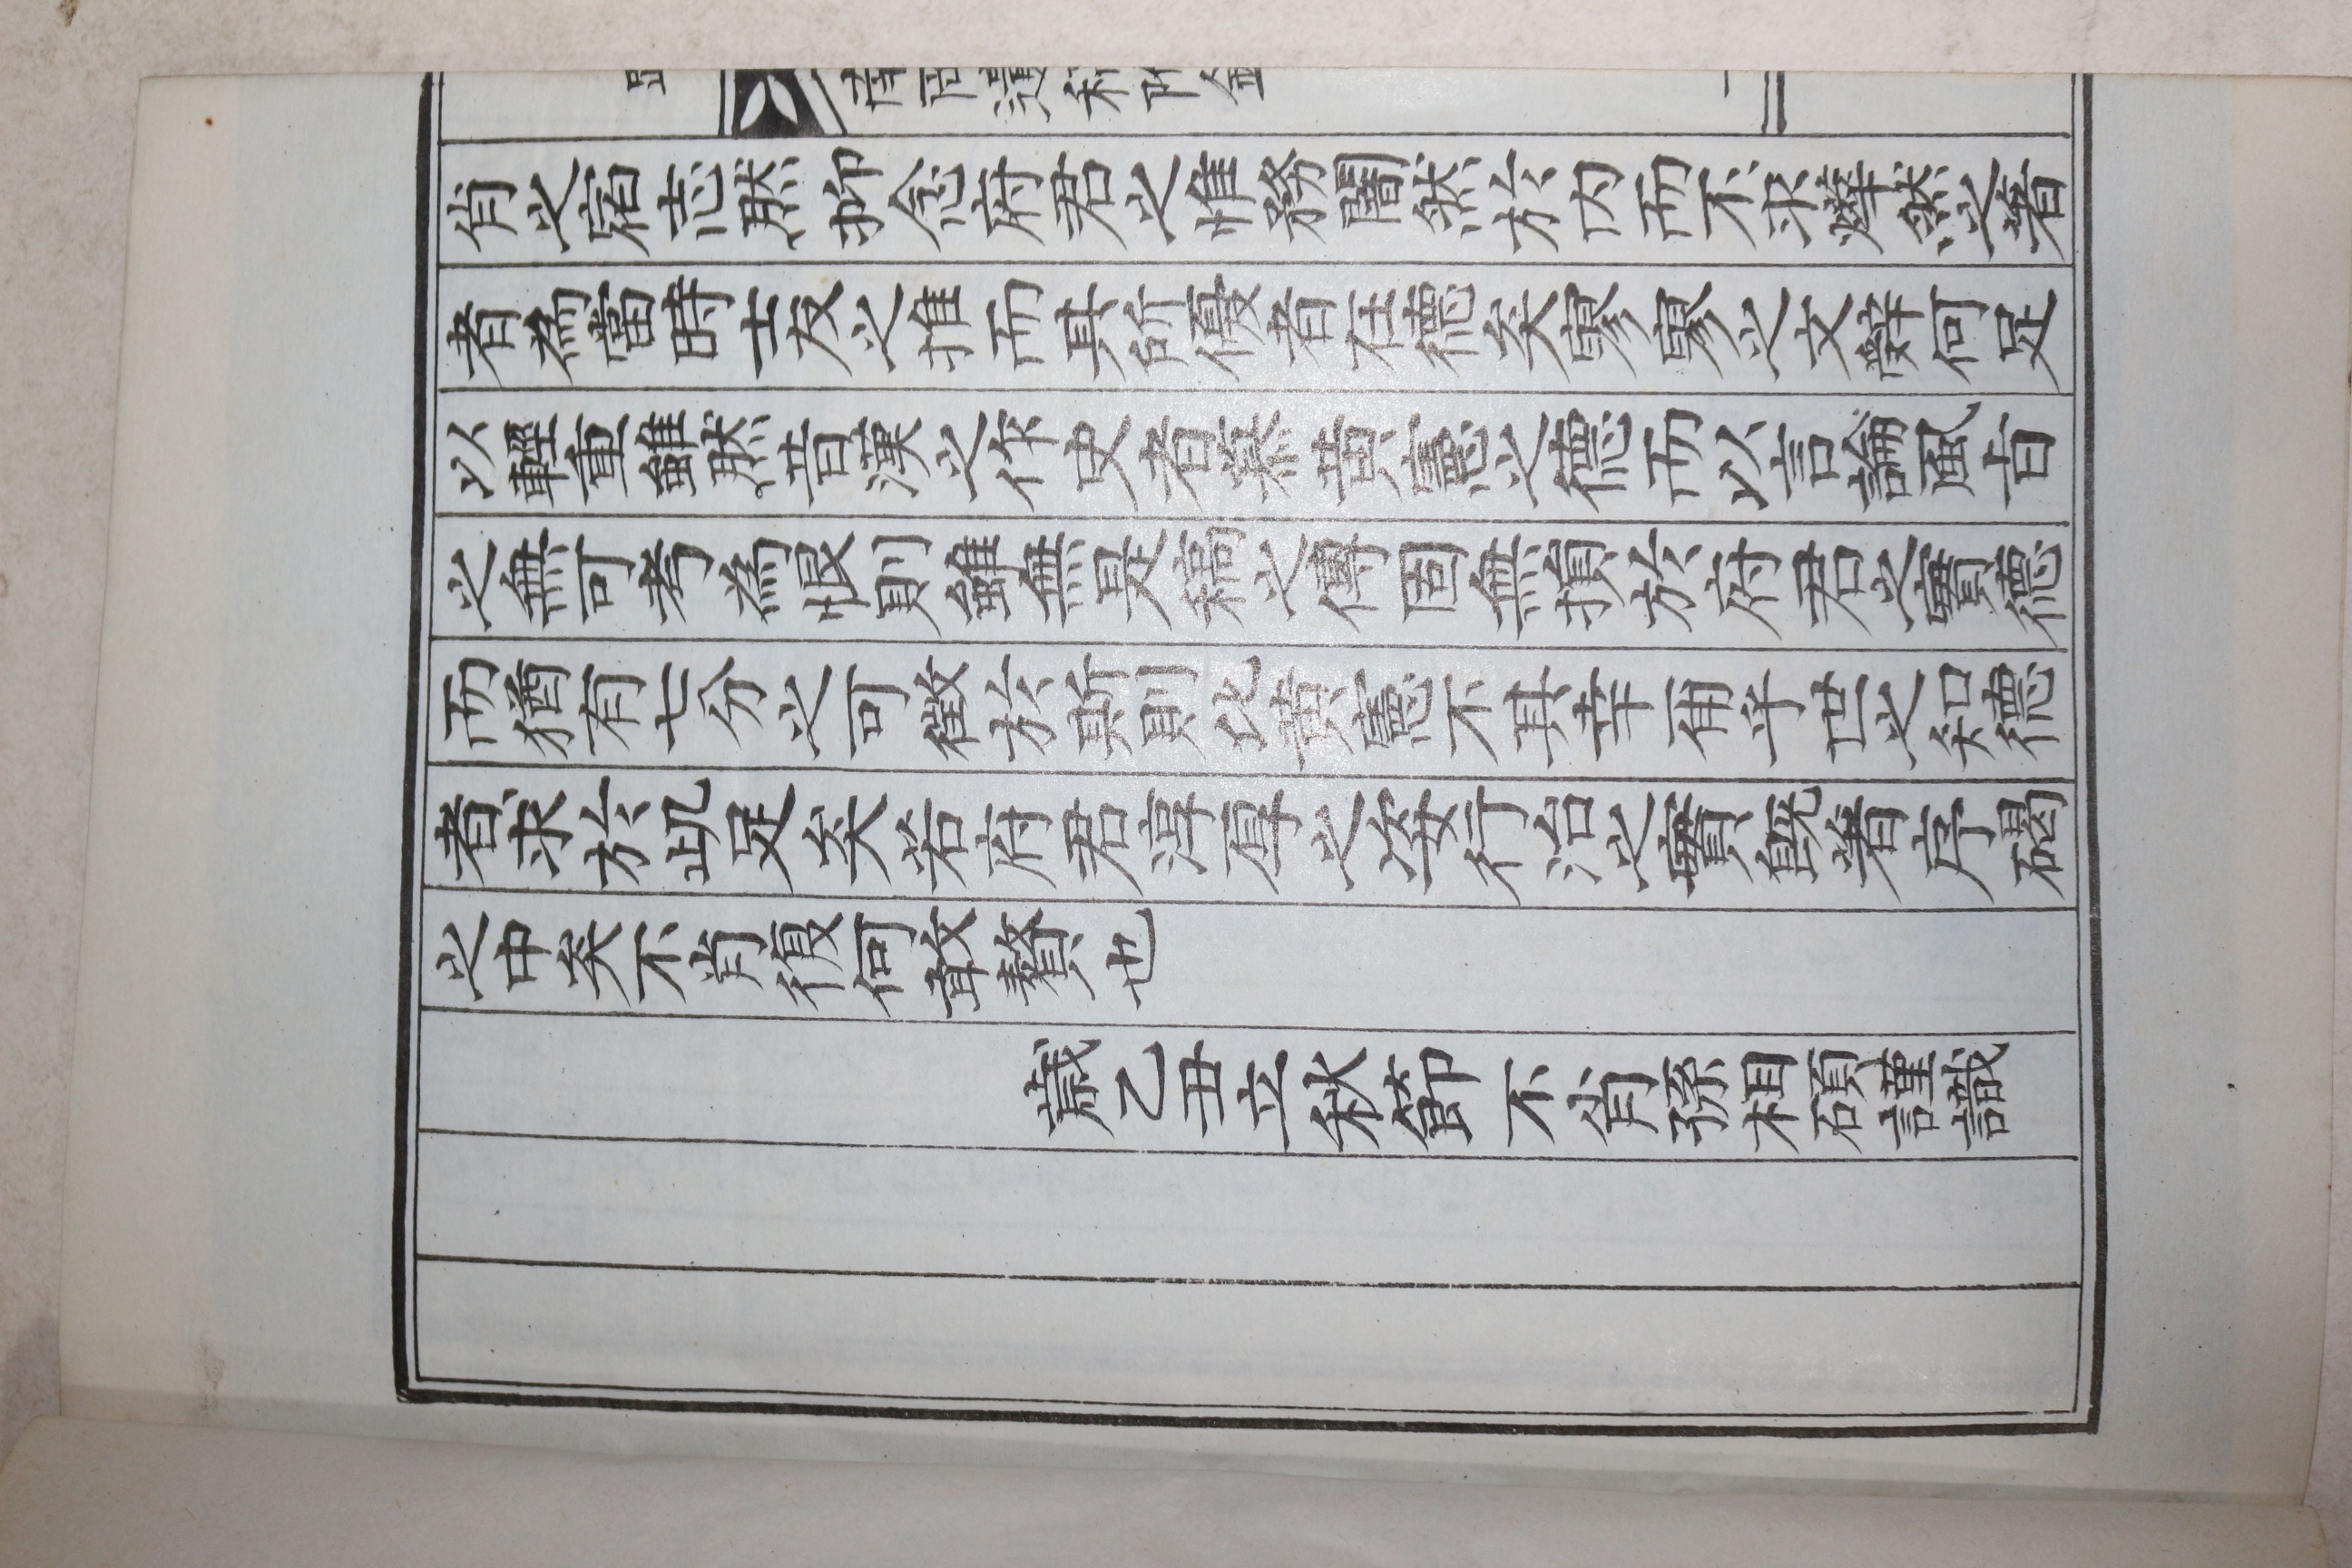 肖之宿志然抑念府君之惟務闇然於内而不求燁然之著
者為當時士友之推而其所優者在德矣寥寥之文辭何足
以輕重雖然昔漢之作史者慕黄憲之德而以言論風旨
之無可考為恨則雖無是稿之傳固無損於府君之實德
而猶有七分之可徵於斯則比黄憲不其幸甭乎世之知德
者求於此足矣若府君淳厚之姿行治之實旣著序碣
之中矣不肖復何敢贅也
歲乙丑立秋節不肖孫相碩謹識
南岡遺稿附錄